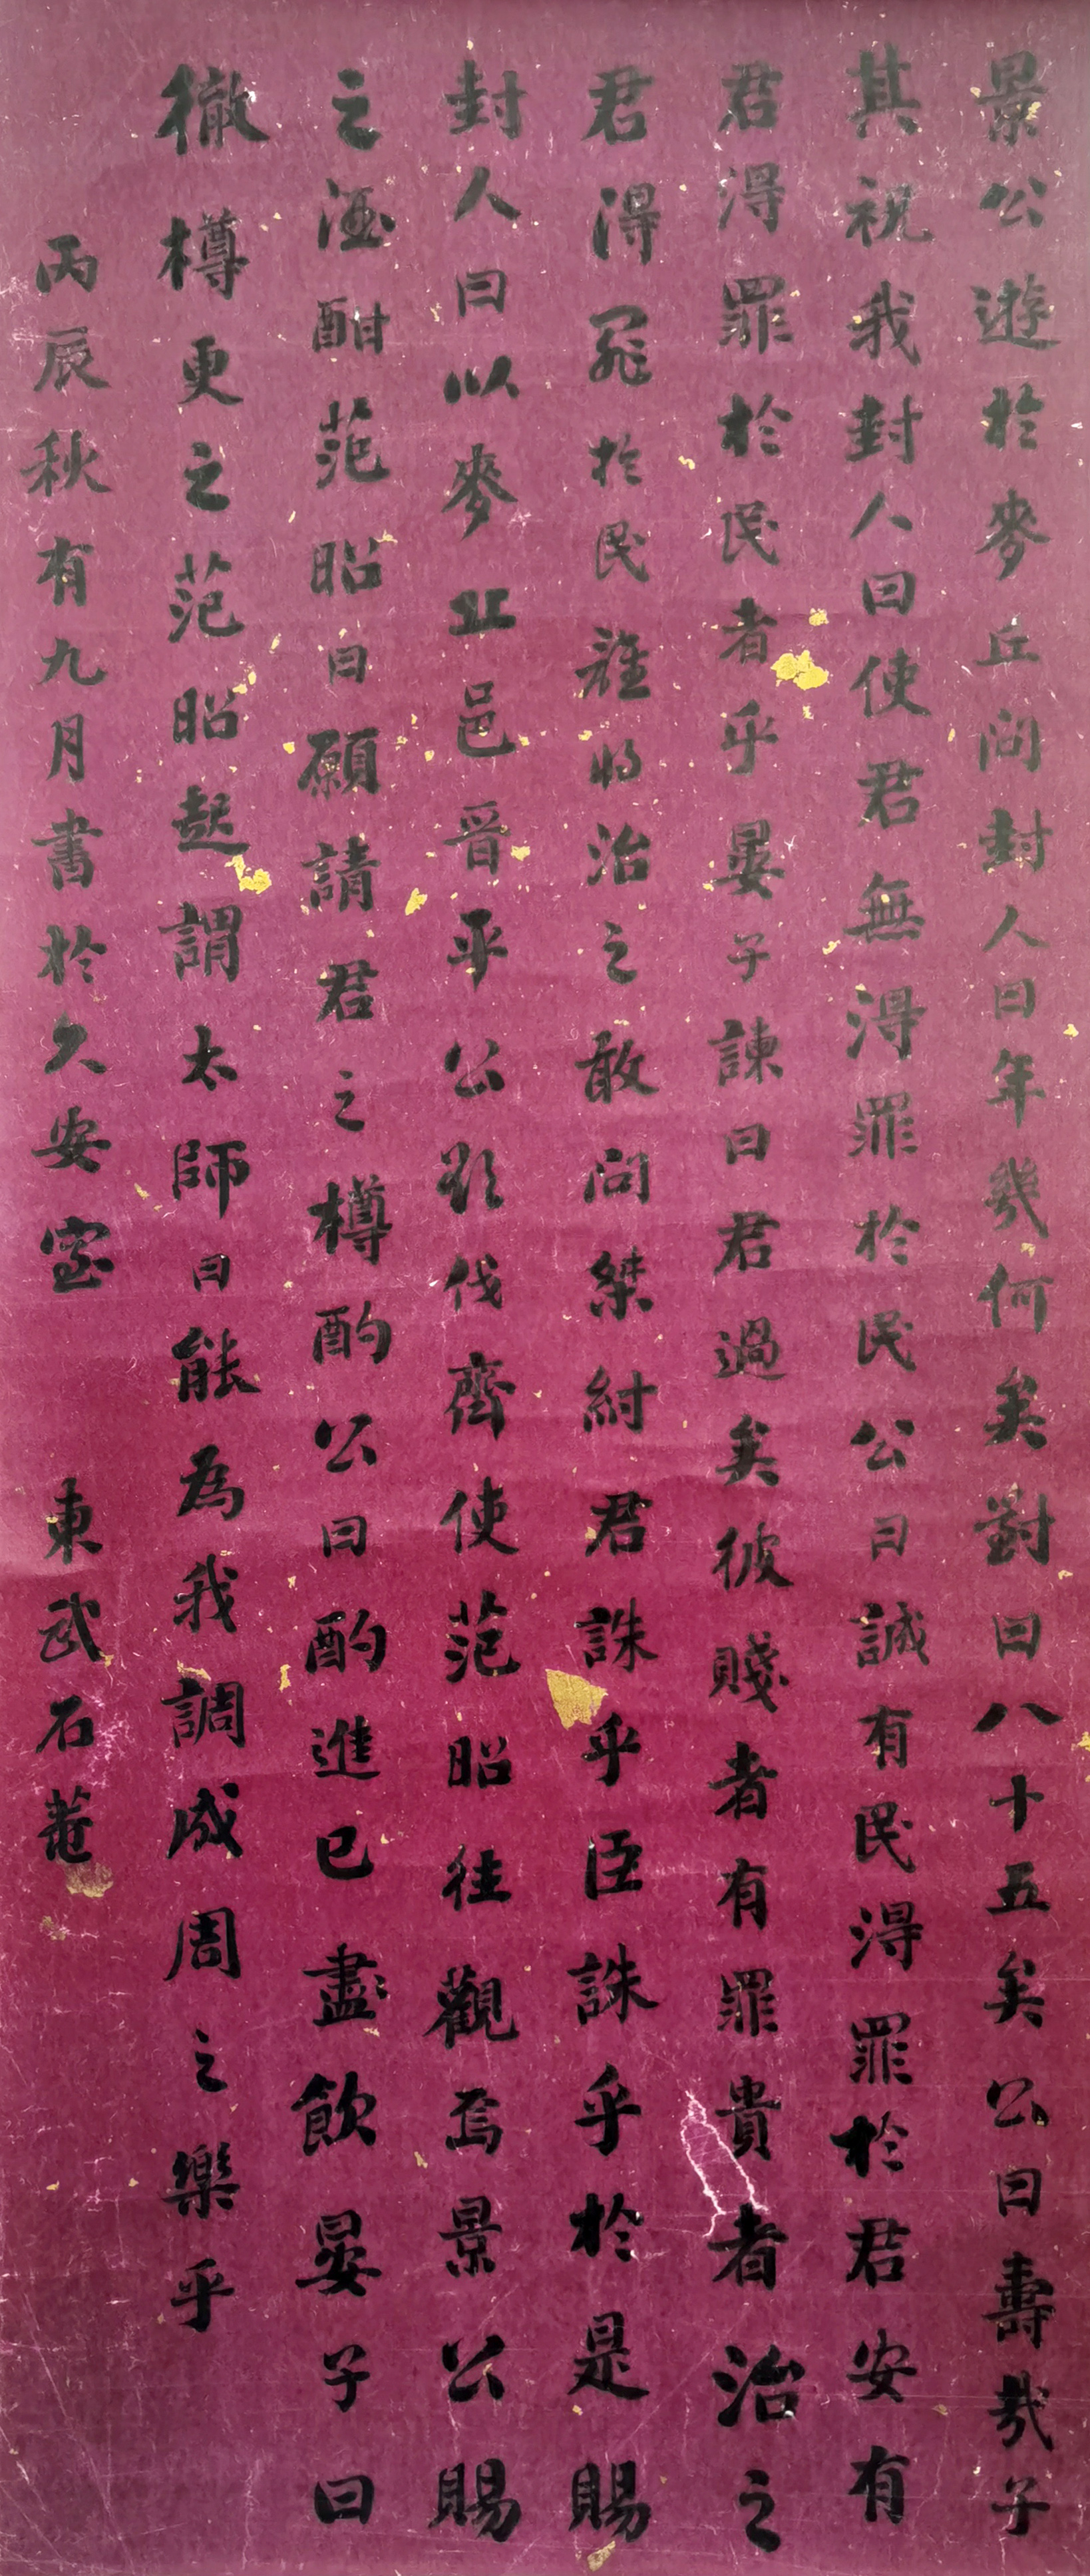 景公遊於麥丘問封人曰年幾何矣對曰八十五矣公曰壽哉子
其祝我封人曰使君無得罪於民公曰誠有民得罪於君安有
君得罪於民者乎晏子諫曰君過矣彼賤者有罪貴者治之
君得罪於民誰將治之敢問桀紂君誅乎臣誅乎於是賜
封人曰以麥丘邑晉平公欲伐齊使范昭往觀焉景公賜
之酒酣范昭曰願請君之樽酌公曰酌進已盡飲晏子曰
徹樽更之范昭起謂太師曰能為我調成周之樂乎
丙辰秋有九月書於久安室 東武石菴